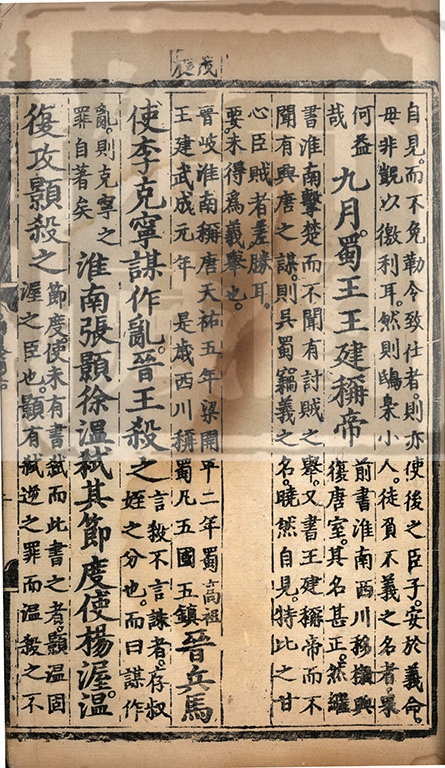 自見而不免勤令致仕者則亦使後之臣子安於義命
毋非覬以徼利耳然則鴟梟小人徒負不義之名者果
何益
哉
九月蜀王王建稱帝
前書淮南西川移檄興
復唐室其名甚正然繼
書淮南擊楚而不聞有討賊之舉又書王建稱帝而不
聞有興唐之謀則吳蜀竊義之名曉然自見特比之甘
心臣賊者差勝耳
要未得爲義舉也
戊辰
晉岐淮南稱唐天祐五年梁開平二年蜀高祖
王建武成元年 是歲西川稱蜀凡五國五鎮
晉兵馬
使李克寧謀作亂晉王殺之
言殺不言誅者存叔
姪之分也而曰謀作
亂則克寧之
罪自著矣
淮南張顥徐溫弒其節度使楊渥溫
復攻顥殺之
節度使未有書弒而此書之者顥溫固
渥之臣也顥有弒逆之罪而溫殺之不